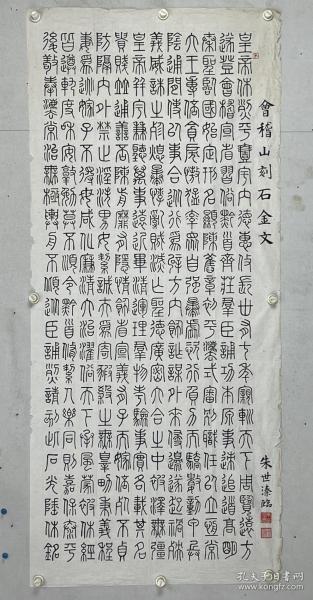 會稽山刻石全文
皇帝休烈平壹宇內德惠攸長卅有七年親巡天下周覽遠方
遂登會稽宣省習俗黔首齋莊羣臣誦功本原事迹追道高明
秦聖臨國始定刑名顯陳舊章初平法式審別職任以立恆常
六王專倍貪戾慠猛率眾自強暴虐恣行負力而驕數動甲兵
陰通閒使以事合從行為辟方內飾詐謀外來侵邊遂起禍殃
義威誅之殄熄暴悖亂賊滅亡聖德廣密六合之中被澤無疆
皇帝并宇兼聽萬事遠近畢清運理羣物考驗事實各載其名
貴賤並通善否陳前靡有隱情飾省宣義有子而嫁倍死不貞
防隔內外禁止淫泆男女絜誠夫為寄豭殺之無罪男秉義程
妻為逃嫁子不得母咸化廉清大治濯俗天下承風蒙被休經
皆遵軌度和安敦勉莫不順令黔首脩絜人樂同則嘉保太平
後敬奉法常治無極輿舟不傾從臣誦烈請刻此石光陲休銘
朱世溱臨